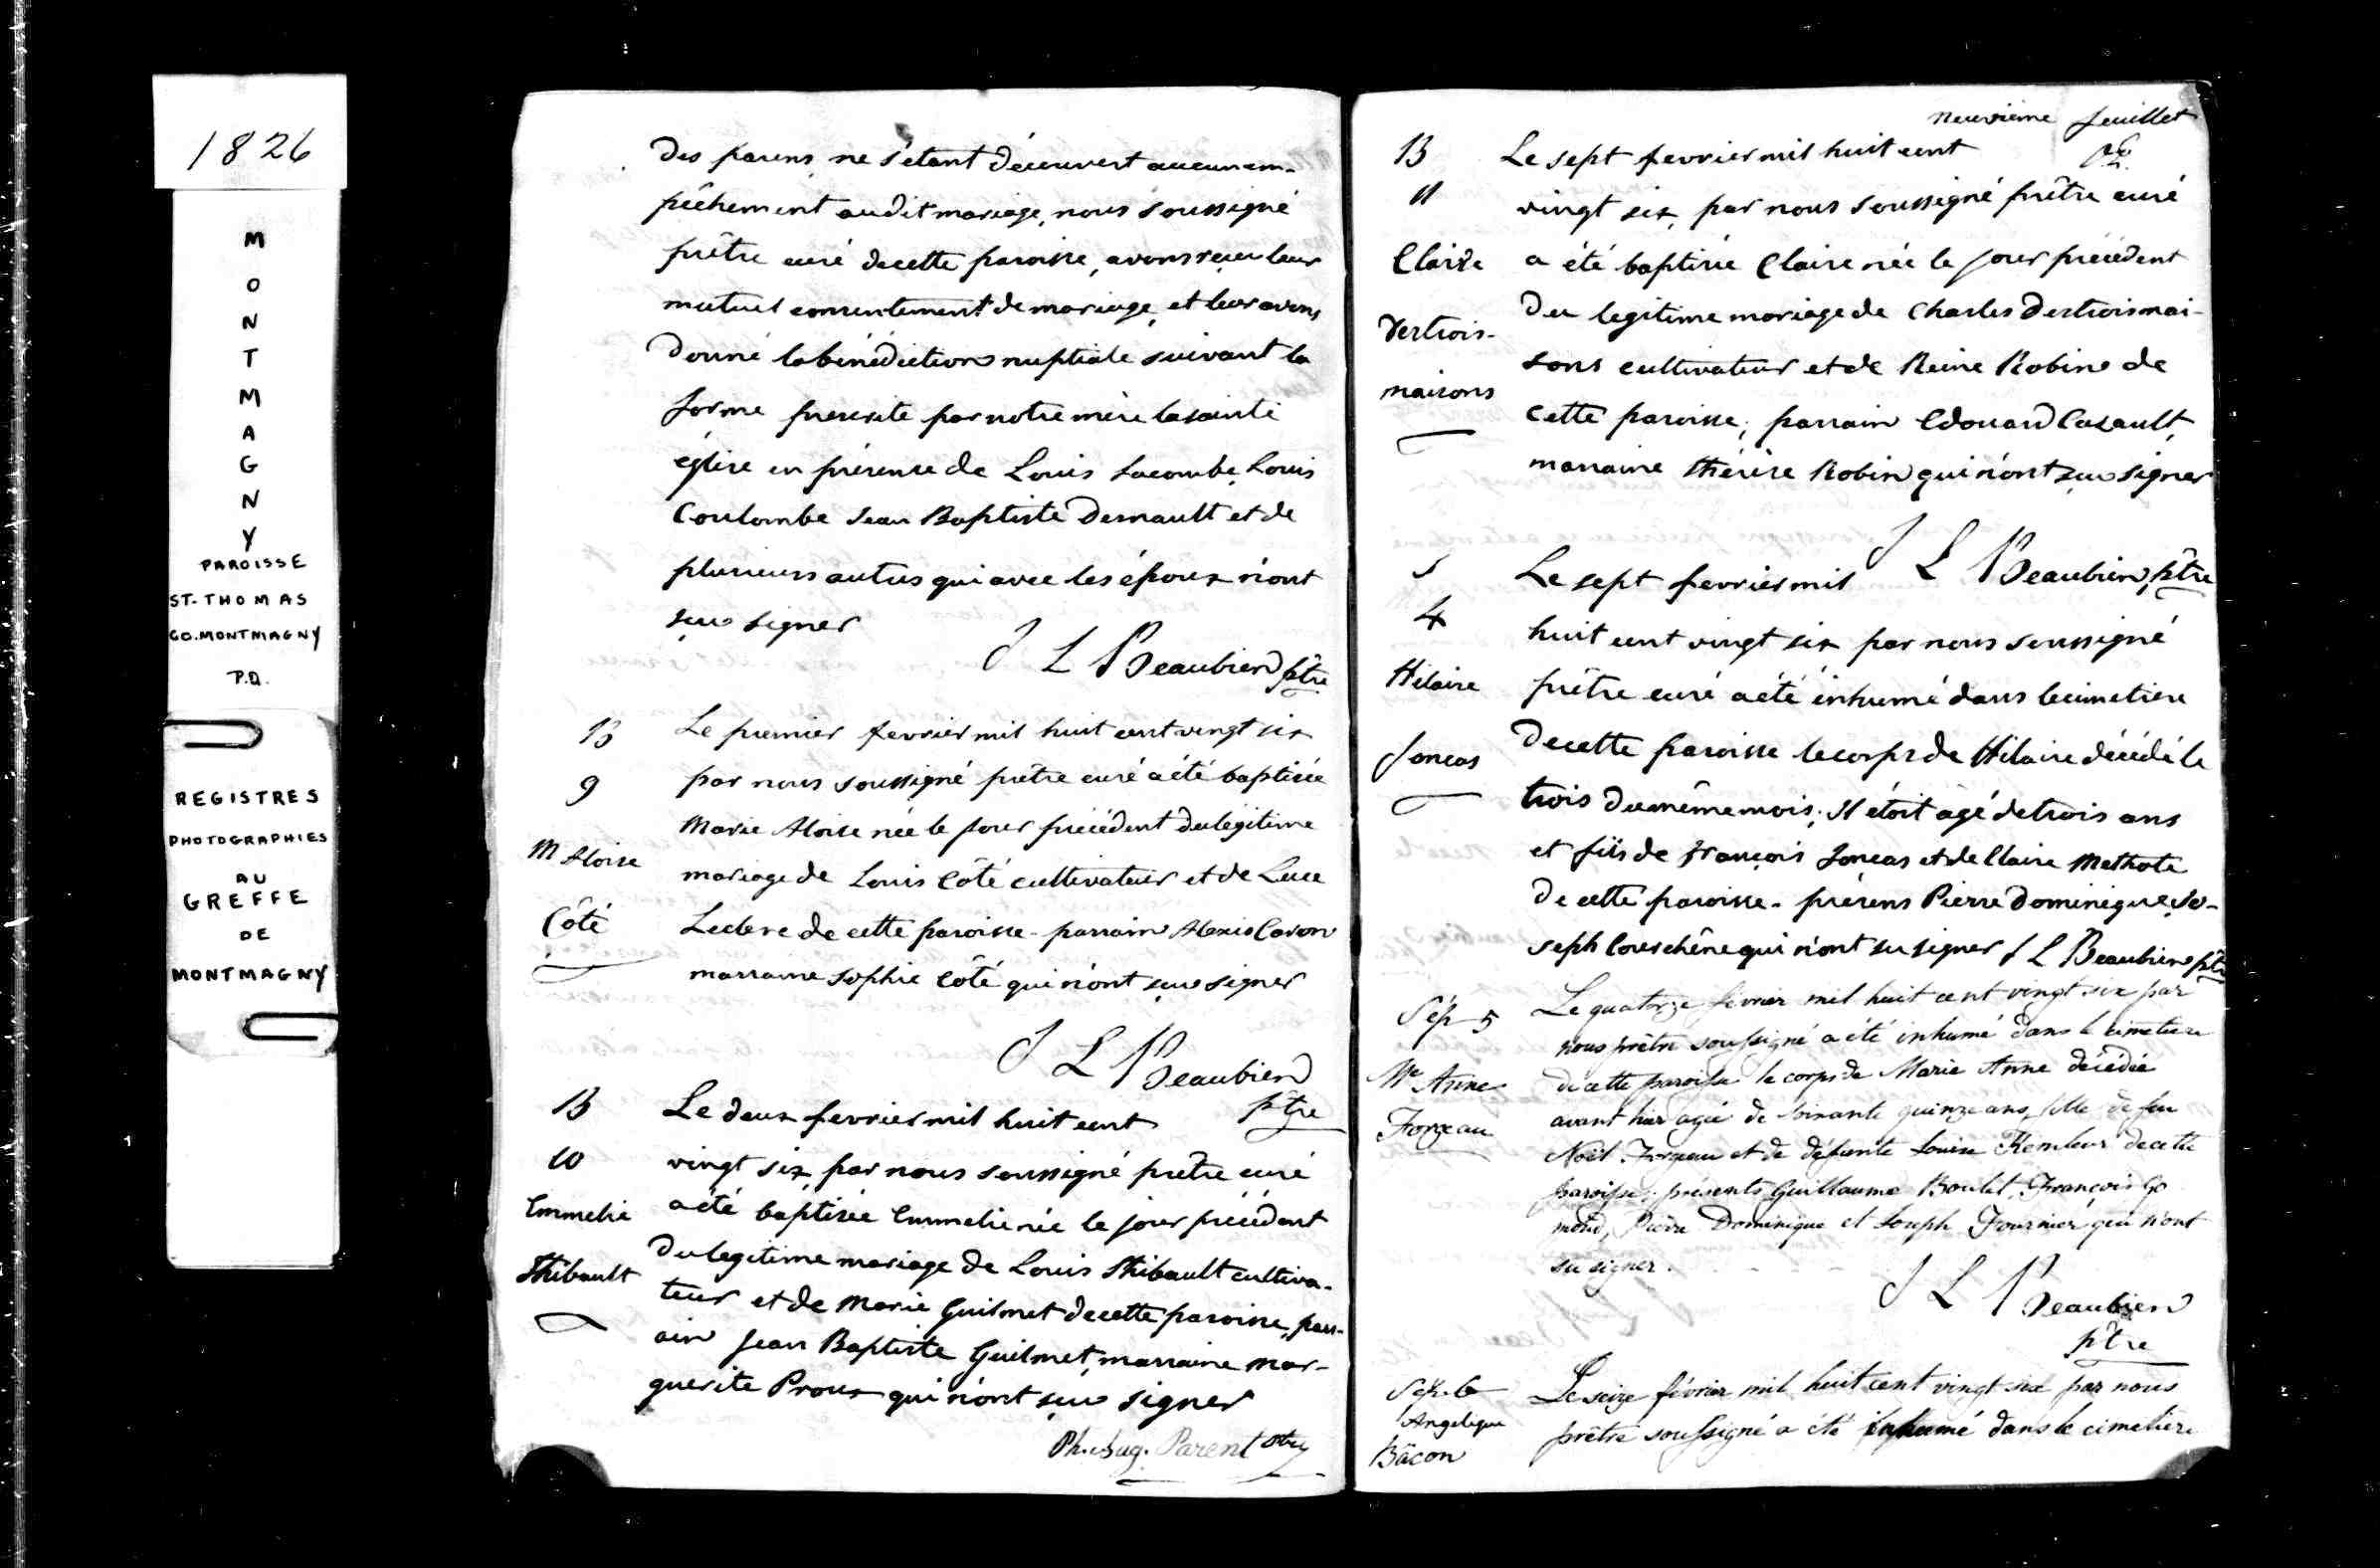 1826
M
O
N
T
M
A
G
N
Y
PAROISSE
ST-THOMAS
CO.MONTMAGNY
P.Q.
REGISTRES
PHOTOGRAPHIES
AU
GREFFE
DE
MONTMAGNY
des parens, ne s'étant découvert aucun em-
pêchement audit mariage, nous soussigné
prêtre curé de cette paroisse, avons reçu leur
mutuel consentement de mariage, et leur avons
donné la bénédiction nuptiale suivant la
forme prescrite par notre mère la sainte
église en présence de Louis Lacombe, Louis
Coulombe Jean Baptiste Dernault et de
plusieurs autres qui avec les époux n'ont
sçu signer
J L Beaubien ptre
B
9
M Aloise
Côté
Le premier fevrier mil huit cent vingt six
par nous soussigné prêtre curé a été baptisée
Marie Aloise née le jour précédent du légitime
mariage de Louis Côté cultivateur et de Luce
Leclerc de cette paroisse - parrain Alexis Caron
marraine Sophie Côté qui n'ont sçu signer
J L Beaubien
ptre
B
10
Emmelie
Thibault
Le deux fevrier mil huit cent
vingt six, par nous soussigné prêtre curé
a été baptisée Emmelie née le jour précédent
du legitime mariage de Louis Thibault cultiva-
teur et de Marie Guilmet de cette paroisse, parr-
ain Jean Baptiste Guilmet, marraine Mar-
guerite Proux qui n'ont sçu signer
Parent
neuvième feuillet
B
11
Claire
Destrois-
maisons
Le sept fevrier mil huit cent
vingt six, par nous soussigné prêtre curé
a été baptisée Claire née le jour précédent
du legitime mariage de Charles Destroismai-
sons cultivateur et de Reine Robin de
cette paroisse, parrain Edouard Casault,
marraine Thérèse Robin qui n'ont sçu signer
J L Beaubien, ptre
S
4
Hilaire
Joncas
Le sept fevrier mil
huit cent vingt six par nous soussigné
prêtre curé a été inhumé dans le cimetiere
de cette paroisse le corps de Hilaire décédé le
trois du même mois; Il étoit agé de trois ans
et fils de François Joncas et de Claire Methote
de cette paroisse - présens Pierre Dominique, Jo-
seph Courchêne qui n'ont su signer J L Beaubien ptre
Sép 5
Me Anne
Forgeau
Le quatorze février mil huit cent vingt six par
nous prêtre soussigné a été inhumé dans le cimetiere
de cette paroisse le corps de Marie Anne décédée
avant hier agée de soixante quinze ans, fille de feu
Noël Forgeau et de défunte Louise Kemleur de cette
paroisse; présents Guillaume Boulet, François Go
mond, Pierre Dominique et Joseph Fournier qui n'ont
su signer.
J L Beaubien
ptre
Sép. 6
Angelique
Bâcon
Le seize février mil huit cent vingt six par nous
prêtre soussigné a été inhumé dans le cimetiere